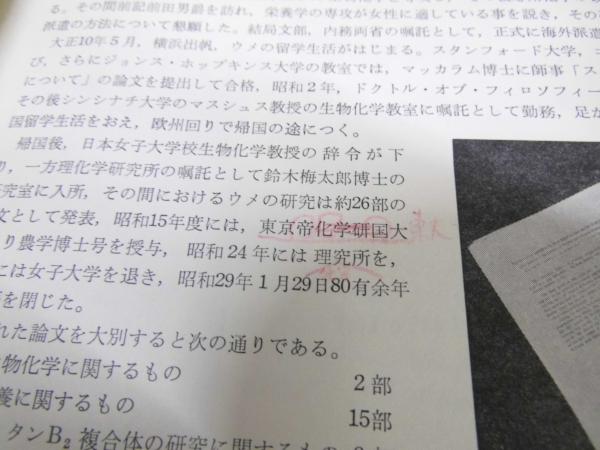 る。その間前記前田男爵を訪れ，栄養学の専攻が女性に適している事を説き，その
派遣の方法について懇願した。結局文部，内務両省の嘱託として，正式に海外派遣
大正10年5月，横浜出帆，ウメの留学生活がはじまる。スタンフォード大学，コ
び，さらにジョンス・ホップキンス大学の教室では，マッカラム博士に師事「ス
について」の論文を提出して合格，昭和2年，ドクトル・オブ・フィロソフィー
その後シンシナチ大学のマスシュス教授の生物化学教室に嘱託として勤務，足か
国留学生活をおえ，欧州回りで帰国の途につく。
帰国後，日本女子大学校生物化学教授の辞令が下
り，一方理化学研究所の嘱託として鈴木梅太郎博士の
究室に入所，その間におけるウメの研究は約26部の
文として発表，昭和15年度には，東京帝化学研国大
り農学博士号を授与，昭和24年には理究所を，
には女子大学を退き，昭和29年1月29日80有余年
を閉じた。
れた論文を大別すると次の通りである。
物化学に関するもの 2部
養に関するもの 15部
タンB₂複合体の研究に関するもの